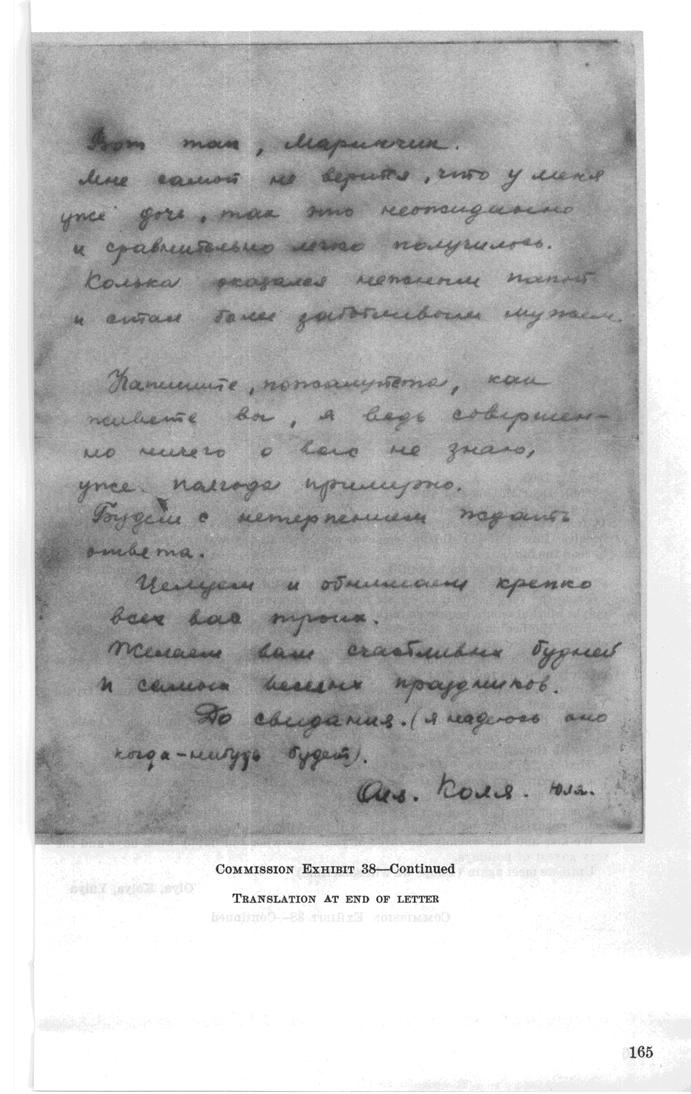 Вот так, Маринчик.
Мне самой не верится, что у меня
уже дочь, так это неожиданно
и сравнительно легко получилось.
Колька оказался нежным папой
и стал более заботливым мужем.
Напишите, пожалуйста, как
живете вы, я ведь совершен-
но ничего о вас не знаю,
уже полгода примерно.
Будем с нетерпением ждать
ответа.
Целуем и обнимаем крепко
всех вас троих.
Желаем вам счастливых будней
и самых веселых праздников.
До свидания. (я надеюсь оно
когда-нибудь будет).
Оля. Коля. Юля.
COMMISSION EXHIBIT 38—Continued
TRANSLATION AT END OF LETTER
Olya, Kolya, Yulya
COMMISSION EXHIBIT 38—Continued
165